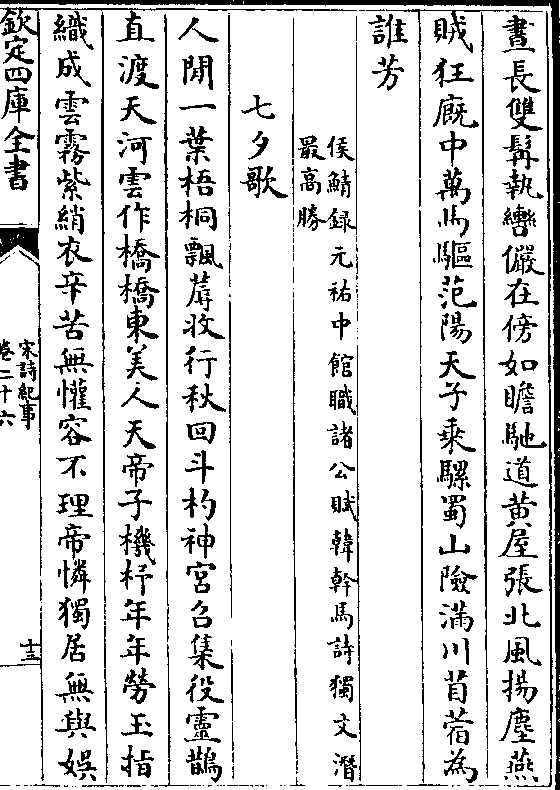 晝長雙髯執轡儼在傍如瞻馳道黄屋張北風揚塵燕
賊狂廐中萬馬驅范陽天子乘騾蜀山險滿川苜蓿為
誰芳
侯鯖録元祐中館職諸公賦韓幹馬詩獨文潛
最髙勝
七夕歌
人間一葉梧桐飄蓐收行秋回斗杓神宫召集役靈鵲
直渡天河雲作橋橋東美人天帝子機杼年年勞玉指
織成雲霧紫綃衣辛苦無懽容不理帝憐獨居無與娯
欽定四庫全書
宋詩紀事
卷二十六
十三